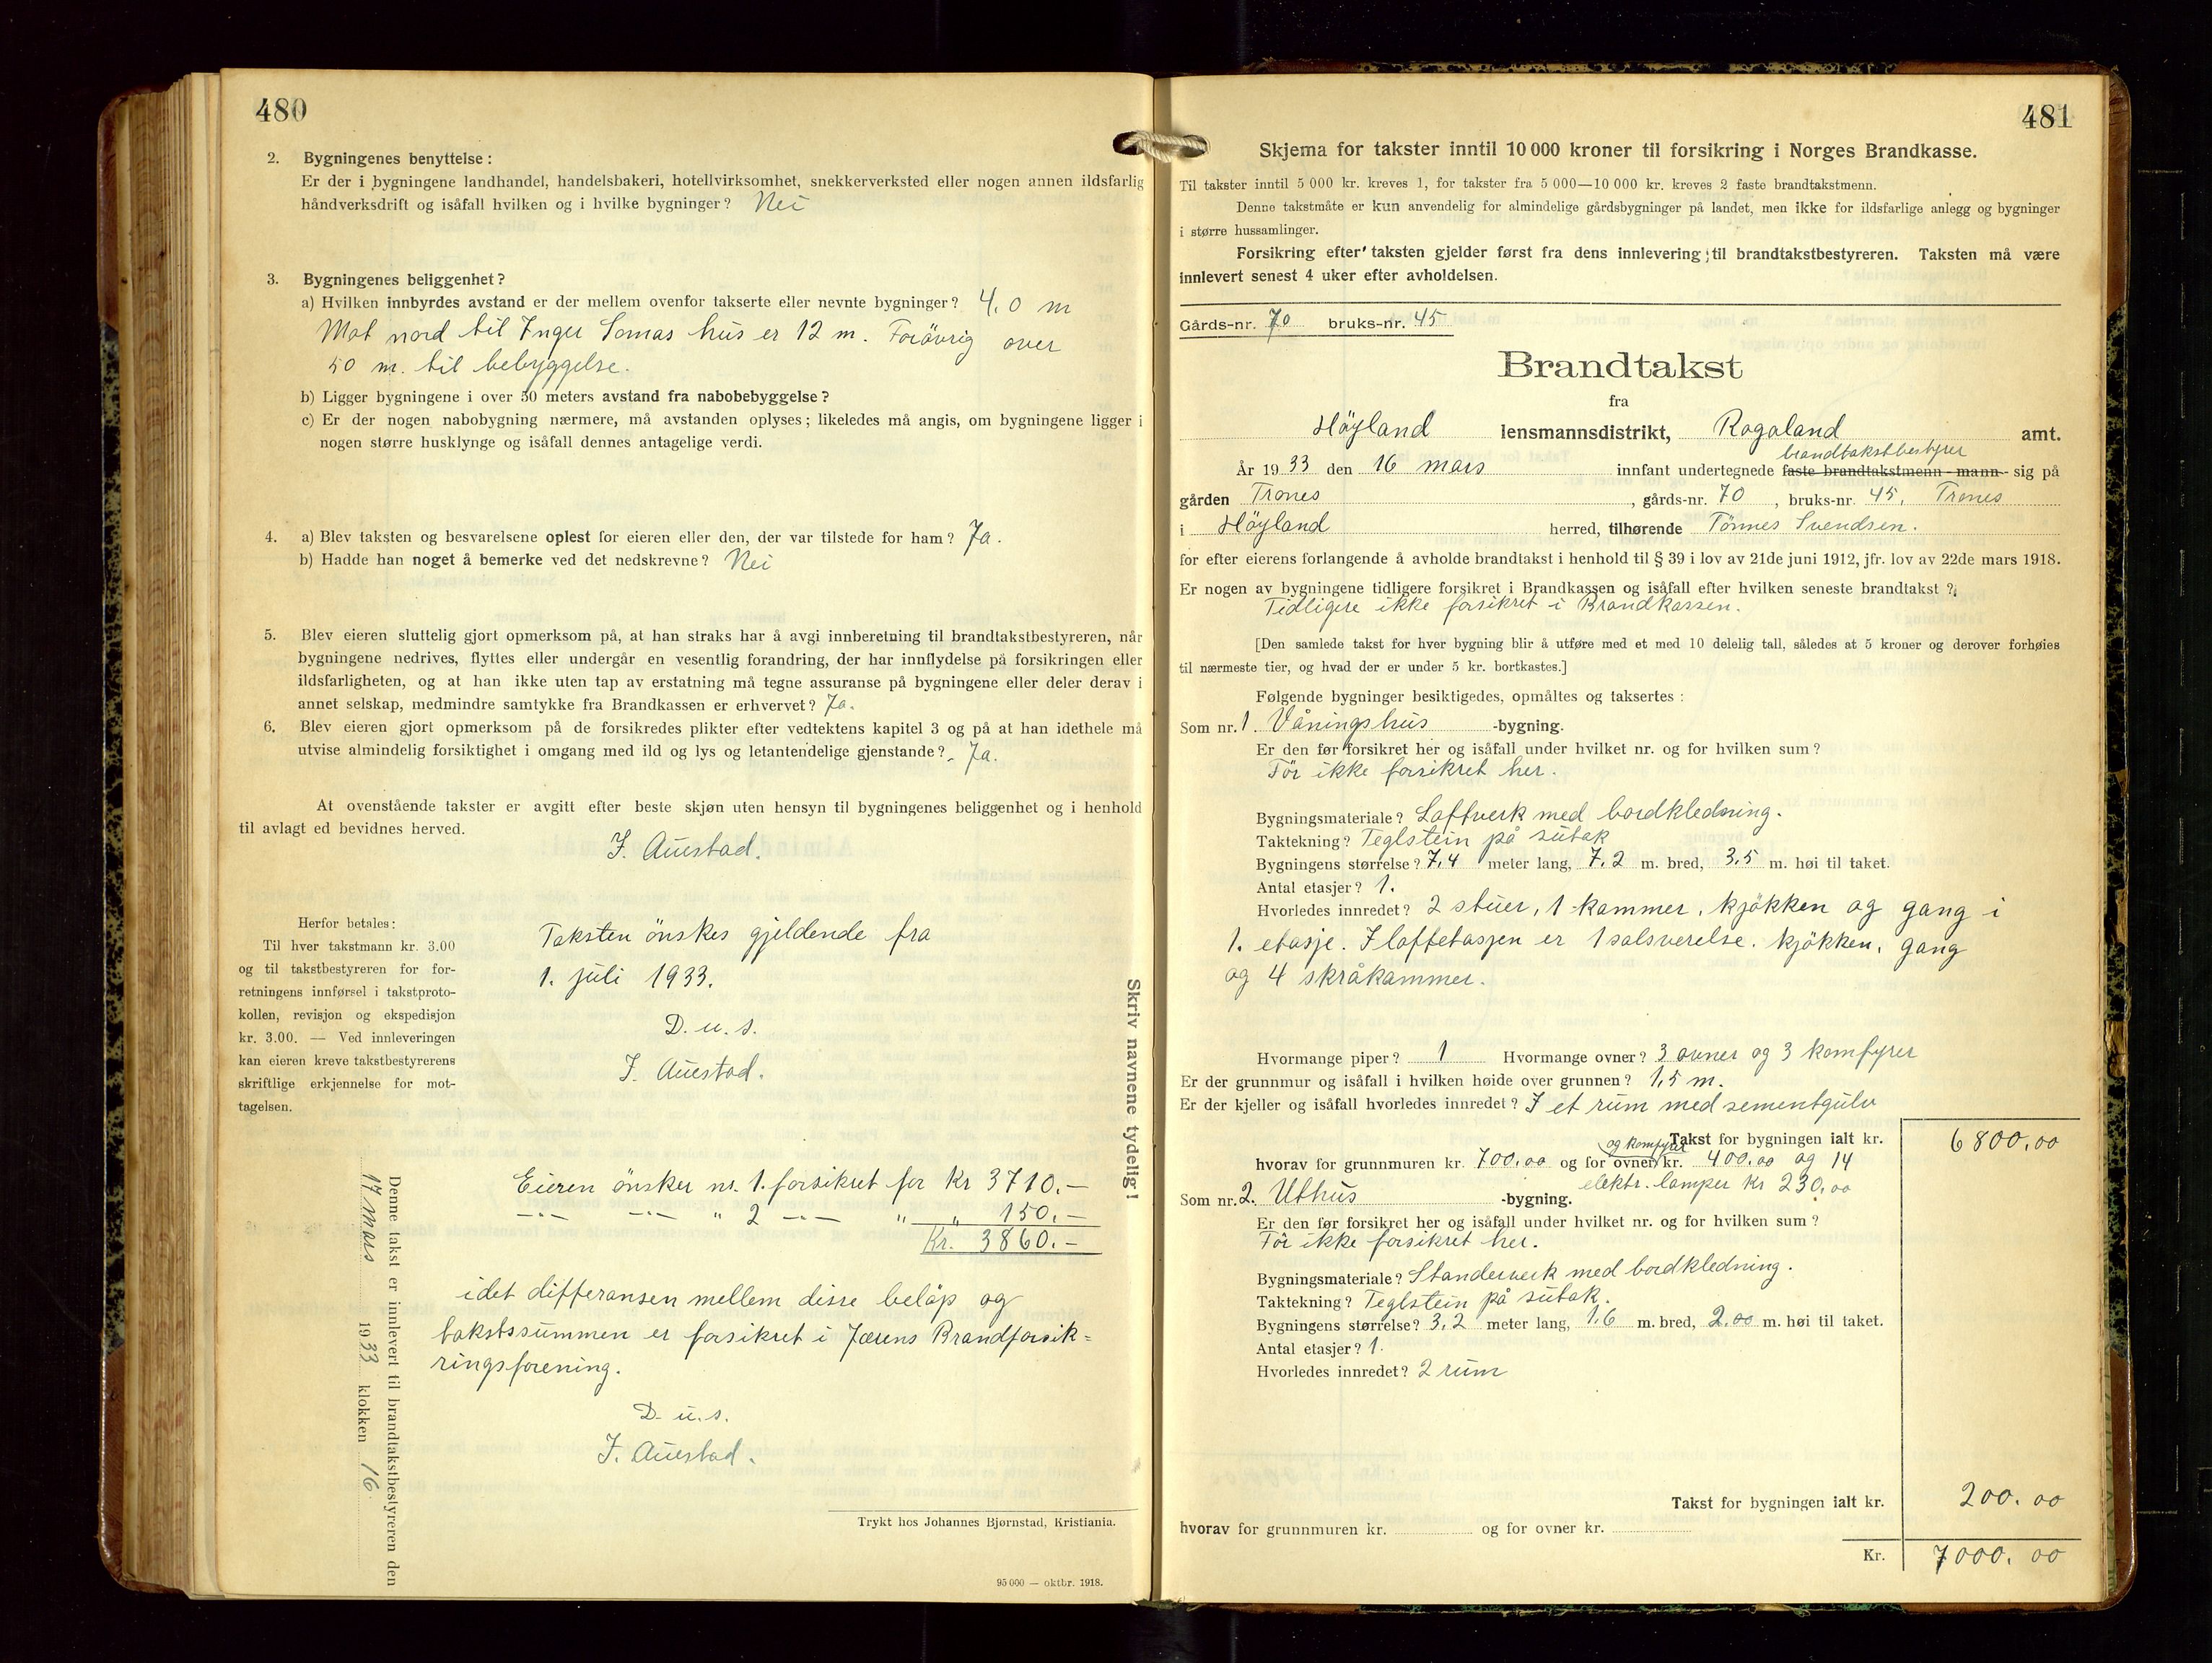 480
2. Bygningenes benyttelse:
Er der i bygningene landhandel, handelsbakeri, hotellvirksomhet, snekkerverksted eller nogen annen ildsfarlig
håndverksdrift og isåfall hvilken og i hvilke bygninger? Nei
3. Bygningenes beliggenhet?
a) Hvilken innbyrdes avstand er der mellem ovenfor takserte eller nevnte bygninger? 4,0 m
Mot nord til Inger Somas hus er 12 m. Forövrig over
50 m. til bebyggelse.
b) Ligger bygningene i over 50 meters avstand fra nabobebyggelse?
c) Er der nogen nabobygning nærmere, må avstanden oplyses; likeledes må angis, om bygningene ligger i
nogen større husklynge og isåfall dennes antagelige verdi.
4. a) Blev taksten og besvarelsene oplest for eieren eller den, der var tilstede for ham? Ja.
b) Hadde han noget å bemerke ved det nedskrevne? Nei
5. Blev eieren sluttelig gjort opmerksom på, at han straks har å avgi innberetning til brandtakstbestyreren, når
bygningene nedrives, flyttes eller undergår en vesentlig forandring, der har innflydelse på forsikringen eller
ildsfarligheten, og at han ikke uten tap av erstatning må tegne assuranse på bygningene eller deler derav i
annet selskap, medmindre samtykke fra Brandkassen er erhvervet? Ja.
6. Blev eieren gjort opmerksom på de forsikredes plikter efter vedtektens kapitel 3 og på at han idethele må
utvise almindelig forsiktighet i omgang med ild og lys og letantendelige gjenstande? Ja.
At ovenstående takster er avgitt efter beste skjøn uten hensyn til bygningenes beliggenhet og i henhold
til avlagt ed bevidnes herved.
J. Auestad.
Herfor betales:
Til hver takstmann kr. 3.00
og til takstbestyreren for for-
retningens innførsel i takstproto-
kollen, revisjon og ekspedisjon
kr. 3.00. — Ved innleveringen
kan eieren kreve takstbestyrerens
skriftlige erkjennelse for mot-
tagelsen.
Taksten önskes gjeldende fra
1. juli 1933.
D. u. s.
J. Auestad.
Skriv navnene tydelig!
Eieren önsker nr. 1. forsikret for Kr 3710.-
-"- -"- " 2 -"- " " 150.-
Kr. 3860.-
idet differansen mellem disse beløp og
takstssummen er forsikret i Jærens Brandforsik=
ringsforening.
D. u. s.
J. Auestad.
Denne takst er innlevert til brandtakstbestyreren den
17 mars 1933 klokken 16.
Trykt hos Johannes Bjørnstad, Kristiania.
95 000 — oktbr. 1918.
481
Skjema for takster inntil 10 000 kroner til forsikring i Norges Brandkasse.
Til takster inntil 5 000 kr. kreves 1, for takster fra 5 000—10 000 kr. kreves 2 faste brandtakstmenn.
Denne takstmåte er kun anvendelig for almindelige gårdsbygninger på landet, men ikke for ildsfarlige anlegg og bygninger
i større hussamlinger.
Forsikring efter taksten gjelder først fra dens innlevering til brandtakstbestyreren. Taksten må være
innlevert senest 4 uker efter avholdelsen.
Gårds-nr. 70 bruks-nr. 45
Brandtakst
fra
Høyland lensmannsdistrikt, Rogaland amt.
brandtakstbestyrer
År 1933 den 16 mars innfant undertegnede faste brandtakstmenn - mann - sig på
gården Trones, gårds-nr. 70, bruks-nr. 45, Trones
i Høyland herred, tilhørende Tönnes Svendsen.
for efter eierens forlangende å avholde brandtakst i henhold til § 39 i lov av 21de juni 1912, jfr. lov av 22de mars 1918.
Er nogen av bygningene tidligere forsikret i Brandkassen og isåfall efter hvilken seneste brandtakst?
Tidligere ikke forsikret i Brandkassen.
[Den samlede takst for hver bygning blir å utføre med et med 10 delelig tall, således at 5 kroner og derover forhøies
til nærmeste tier, og hvad der er under 5 kr. bortkastes.]
Følgende bygninger besiktigedes, opmåltes og taksertes:
Som nr. 1. Våningshus -bygning.
Er den før forsikret her og isåfall under hvilket nr. og for hvilken sum?
För ikke forsikret her.
Bygningsmateriale? Laftverk med bordkledning.
Taktekning? Teglstein på sutak
Bygningens størrelse? 7,4 meter lang, 7,2 m. bred, 3,5 m. høi til taket.
Antal etasjer? 1.
Hvorledes innredet? 2 stuer, 1 kammer, kjökken og gang i
1. etasje. I loftetasjen er 1 salsverelse. kjökken, gang
og 4 skråkammer.
Hvormange piper? 1 Hvormange ovner? 3 ovner og 3 komfyrer
Er der grunnmur og isåfall i hvilken høide over grunnen? 1,5 m.
Er der kjeller og isåfall hvorledes innredet? I et rum med sementgulv
Takst for bygningen ialt kr. 6800.00
og komfyrer
hvorav for grunnmuren kr. 700.00 og for ovner kr. 400.00 og 14
elektr. lamper kr 230.00
Som nr. 2. Uthus -bygning.
Er den før forsikret her og isåfall under hvilket nr. og for hvilken sum?
För ikke forsikret her.
Bygningsmateriale? Standerverk med bordkledning.
Taktekning? Teglstein på sutak.
Bygningens størrelse? 3,2 meter lang, 1,6 m. bred, 2.00 m. høi til taket.
Antal etasjer? 1.
Hvorledes innredet? 2 rum
Takst for bygningen ialt kr. 200.00
hvorav for grunnmuren kr. og for ovner kr.
Kr. 7000.00